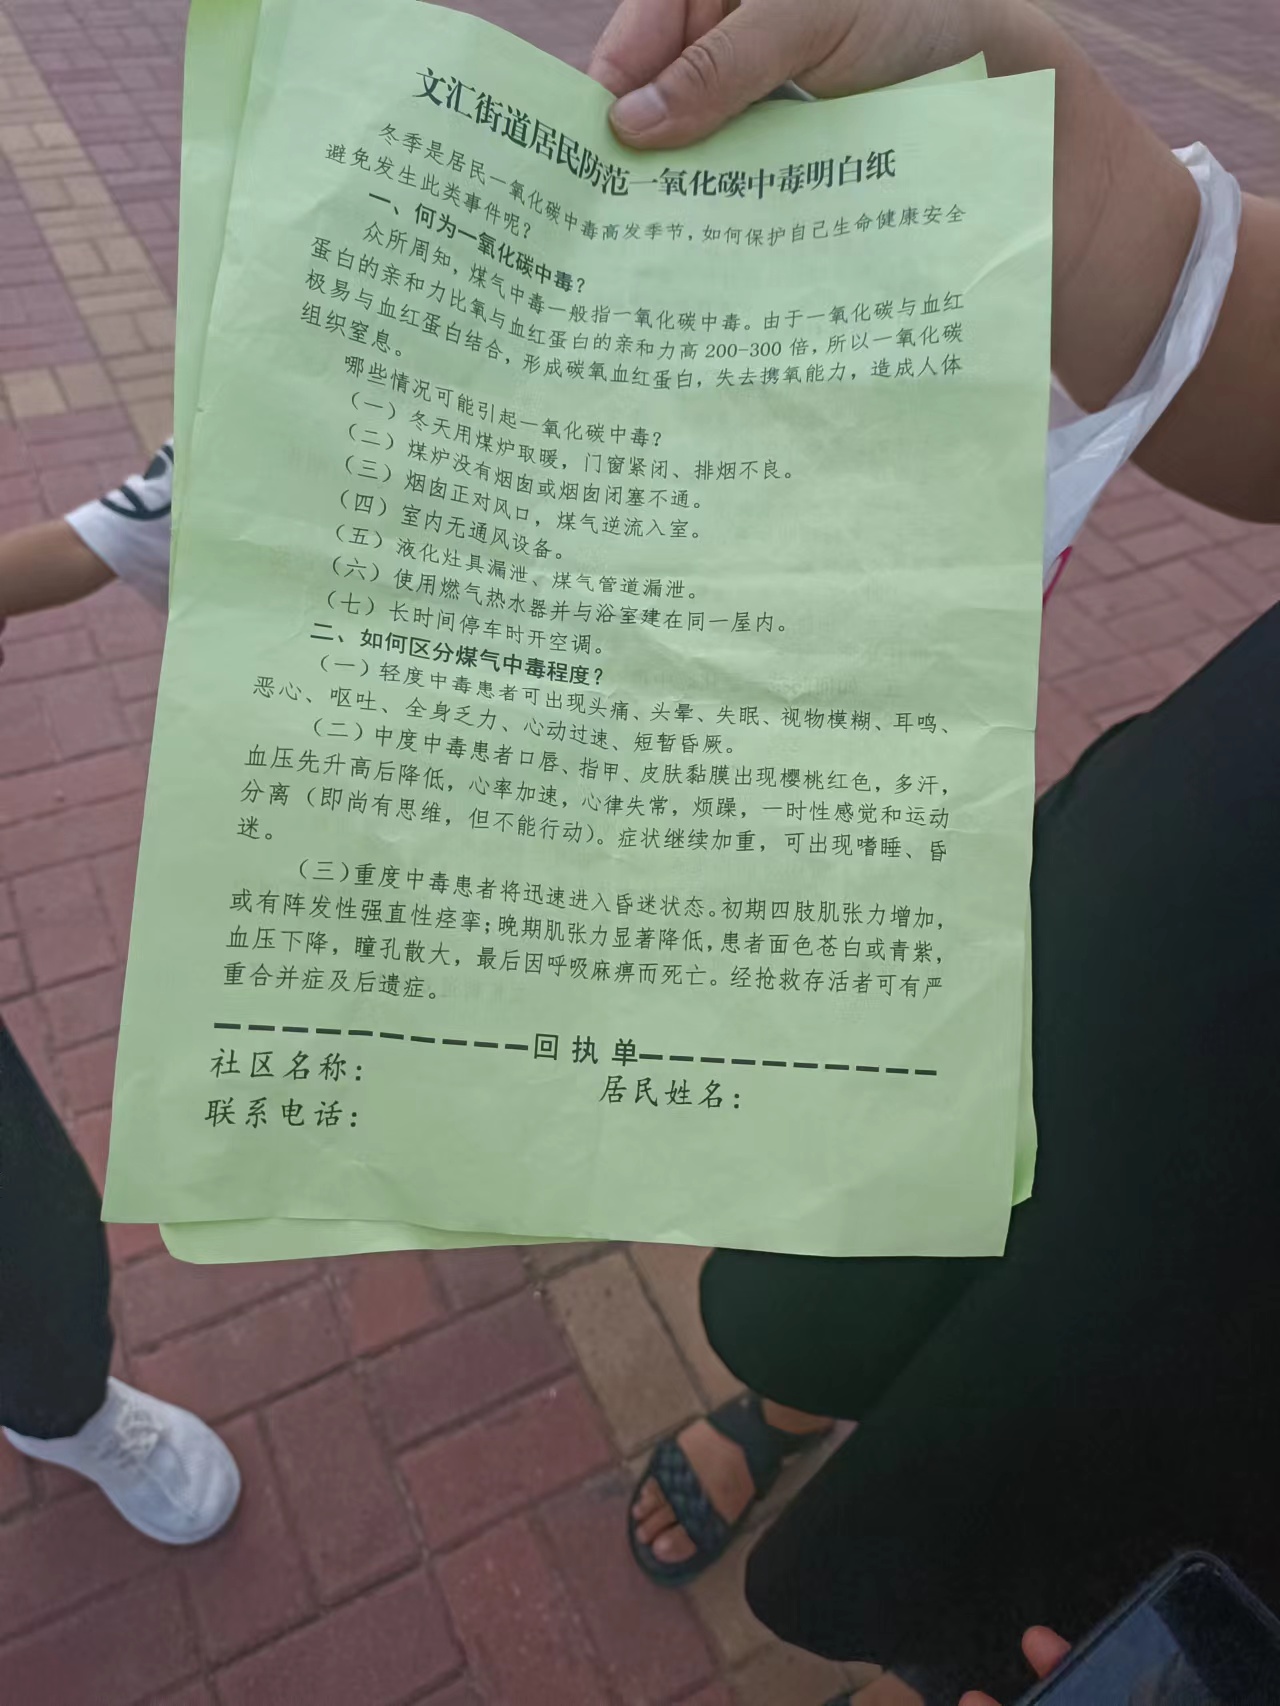 文汇街道居民防范一氧化碳中毒明白纸
冬季是居民一氧化碳中毒高发季节，如何保护自己生命健康安全
避免发生此类事件呢？
一、何为一氧化碳中毒？
众所周知，煤气中毒一般指一氧化碳中毒。由于一氧化碳与血红
蛋白的亲和力比氧与血红蛋白的亲和力高200-300倍，所以一氧化碳
极易与血红蛋白结合，形成碳氧血红蛋白，失去携氧能力，造成人体
组织窒息。
哪些情况可能引起一氧化碳中毒？
（一）冬天用煤炉取暖，门窗紧闭、排烟不良。
（二）煤炉没有烟囱或烟囱闭塞不通。
（三）烟囱正对风口，煤气逆流入室。
（四）室内无通风设备。
（五）液化灶具漏泄、煤气管道漏泄。
（六）使用燃气热水器并与浴室建在同一屋内。
（七）长时间停车时开空调。
二、如何区分煤气中毒程度？
（一）轻度中毒患者可出现头痛、头晕、失眠、视物模糊、耳鸣、
恶心、呕吐、全身乏力、心动过速、短暂昏厥。
（二）中度中毒患者口唇、指甲、皮肤黏膜出现樱桃红色，多汗，
血压先升高后降低，心率加速，心律失常，烦躁，一时性感觉和运动
分离（即尚有思维，但不能行动）。症状继续加重，可出现嗜睡、昏
迷。
（三）重度中毒患者将迅速进入昏迷状态。初期四肢肌张力增加，
或有阵发性强直性痉挛；晚期肌张力显著降低，患者面色苍白或青紫，
血压下降，瞳孔散大，最后因呼吸麻痹而死亡。经抢救存活者可有严
重合并症及后遗症。
回执单
社区名称： 居民姓名：
联系电话：